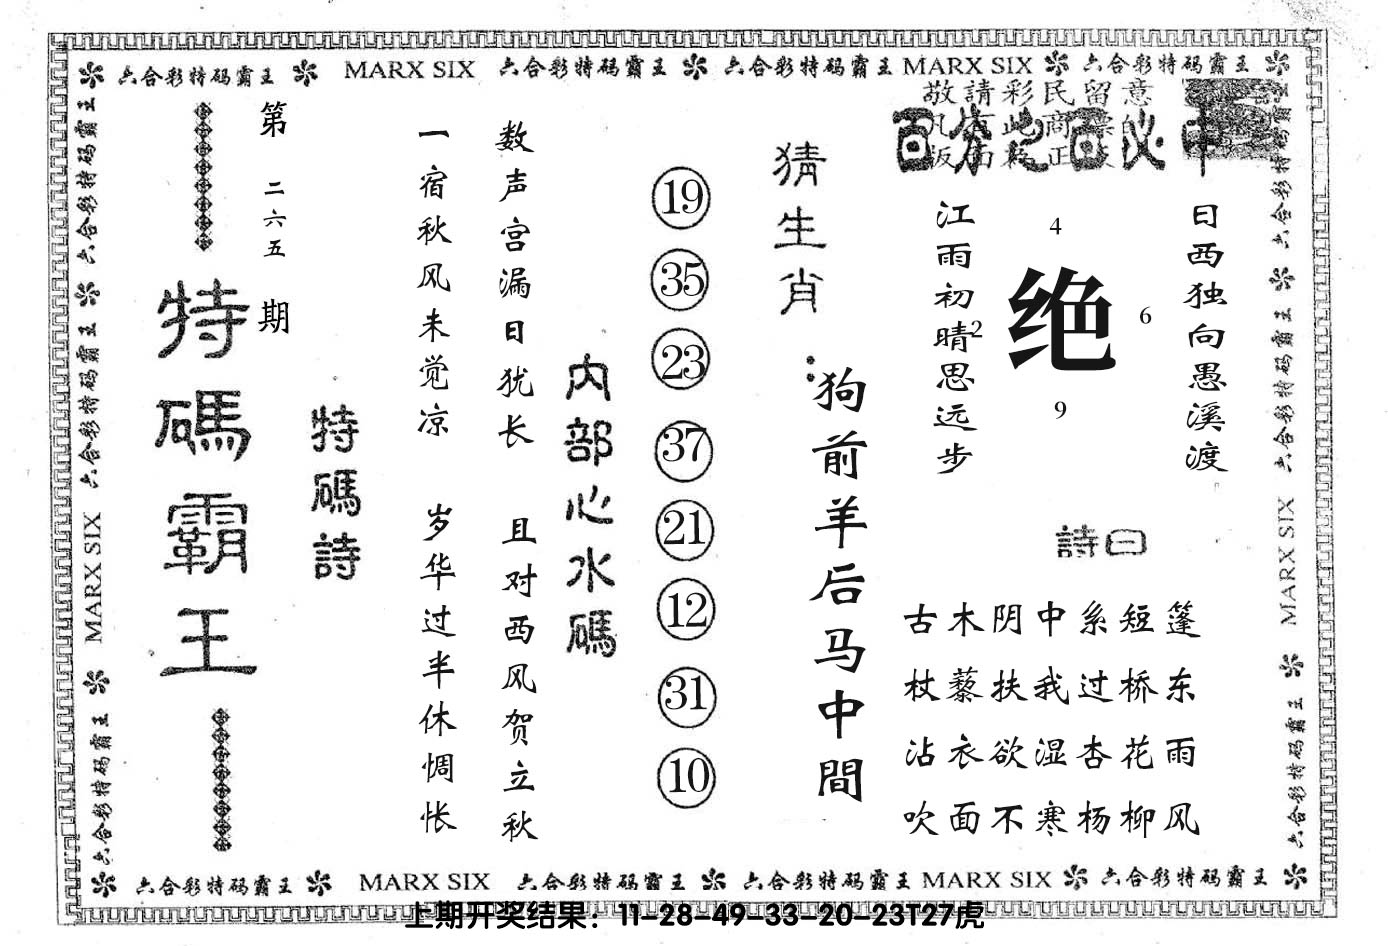 六合彩特码霸王 MARX SIX 六合彩特码霸王 六合彩特码霸王 MARX SIX 六合彩特码霸王
敬請彩民留意
百
中
日西独向愚溪渡
江雨初晴思远步
4
2
绝
6
9
詩曰
古木阴中系短篷
杖藜扶我过桥东
沾衣欲湿杏花雨
吹面不寒杨柳风
猜生肖:
狗前羊后马中間
19
35
23
37
21
12
31
10
内部心水碼
数声宫漏日犹长 且对西风贺立秋
一宿秋风未觉凉 岁华过半休惆怅
特碼詩
第二六五期
特碼霸王
六合彩特码霸王 六合彩特码霸王 MARX SIX 六合彩特码霸王
六合彩特码霸王 六合彩特码霸王 MARX SIX 六合彩特码霸王
六合彩特码霸王 MARX SIX 六合彩特码霸王 六合彩特码霸王 MARX SIX 六合彩特码霸王
上期开奖结果：11-28-49-33-20-23T27虎